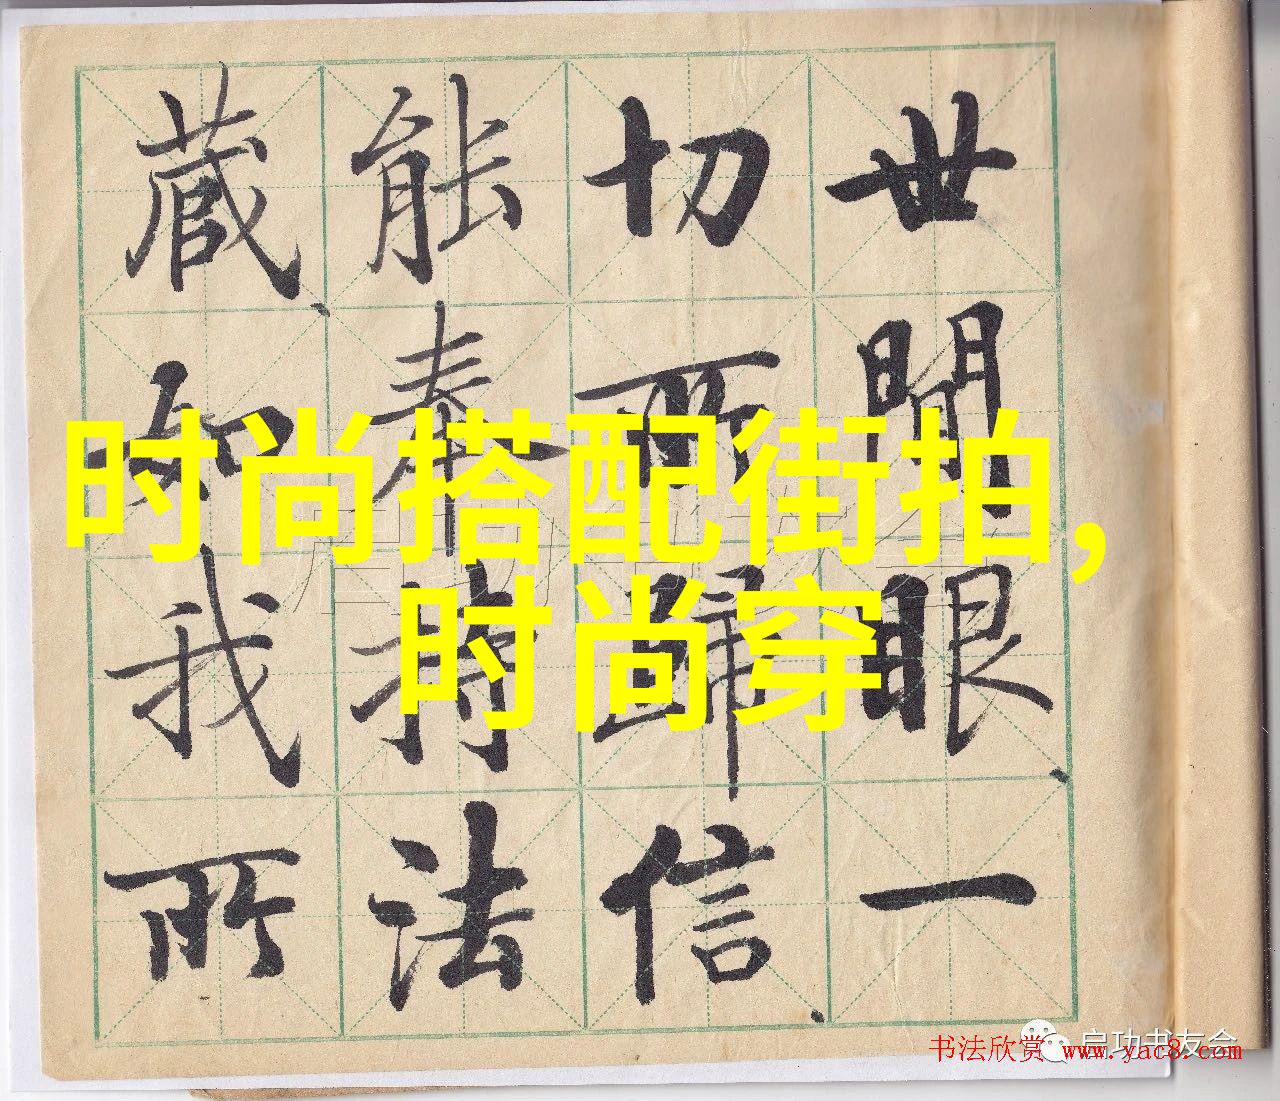 世間眼、一
切所歸信、
能奉持法
藏、如我所
时尚搭配街拍,
时尚穿
启功书友会
书法欣赏 www.yac8.com